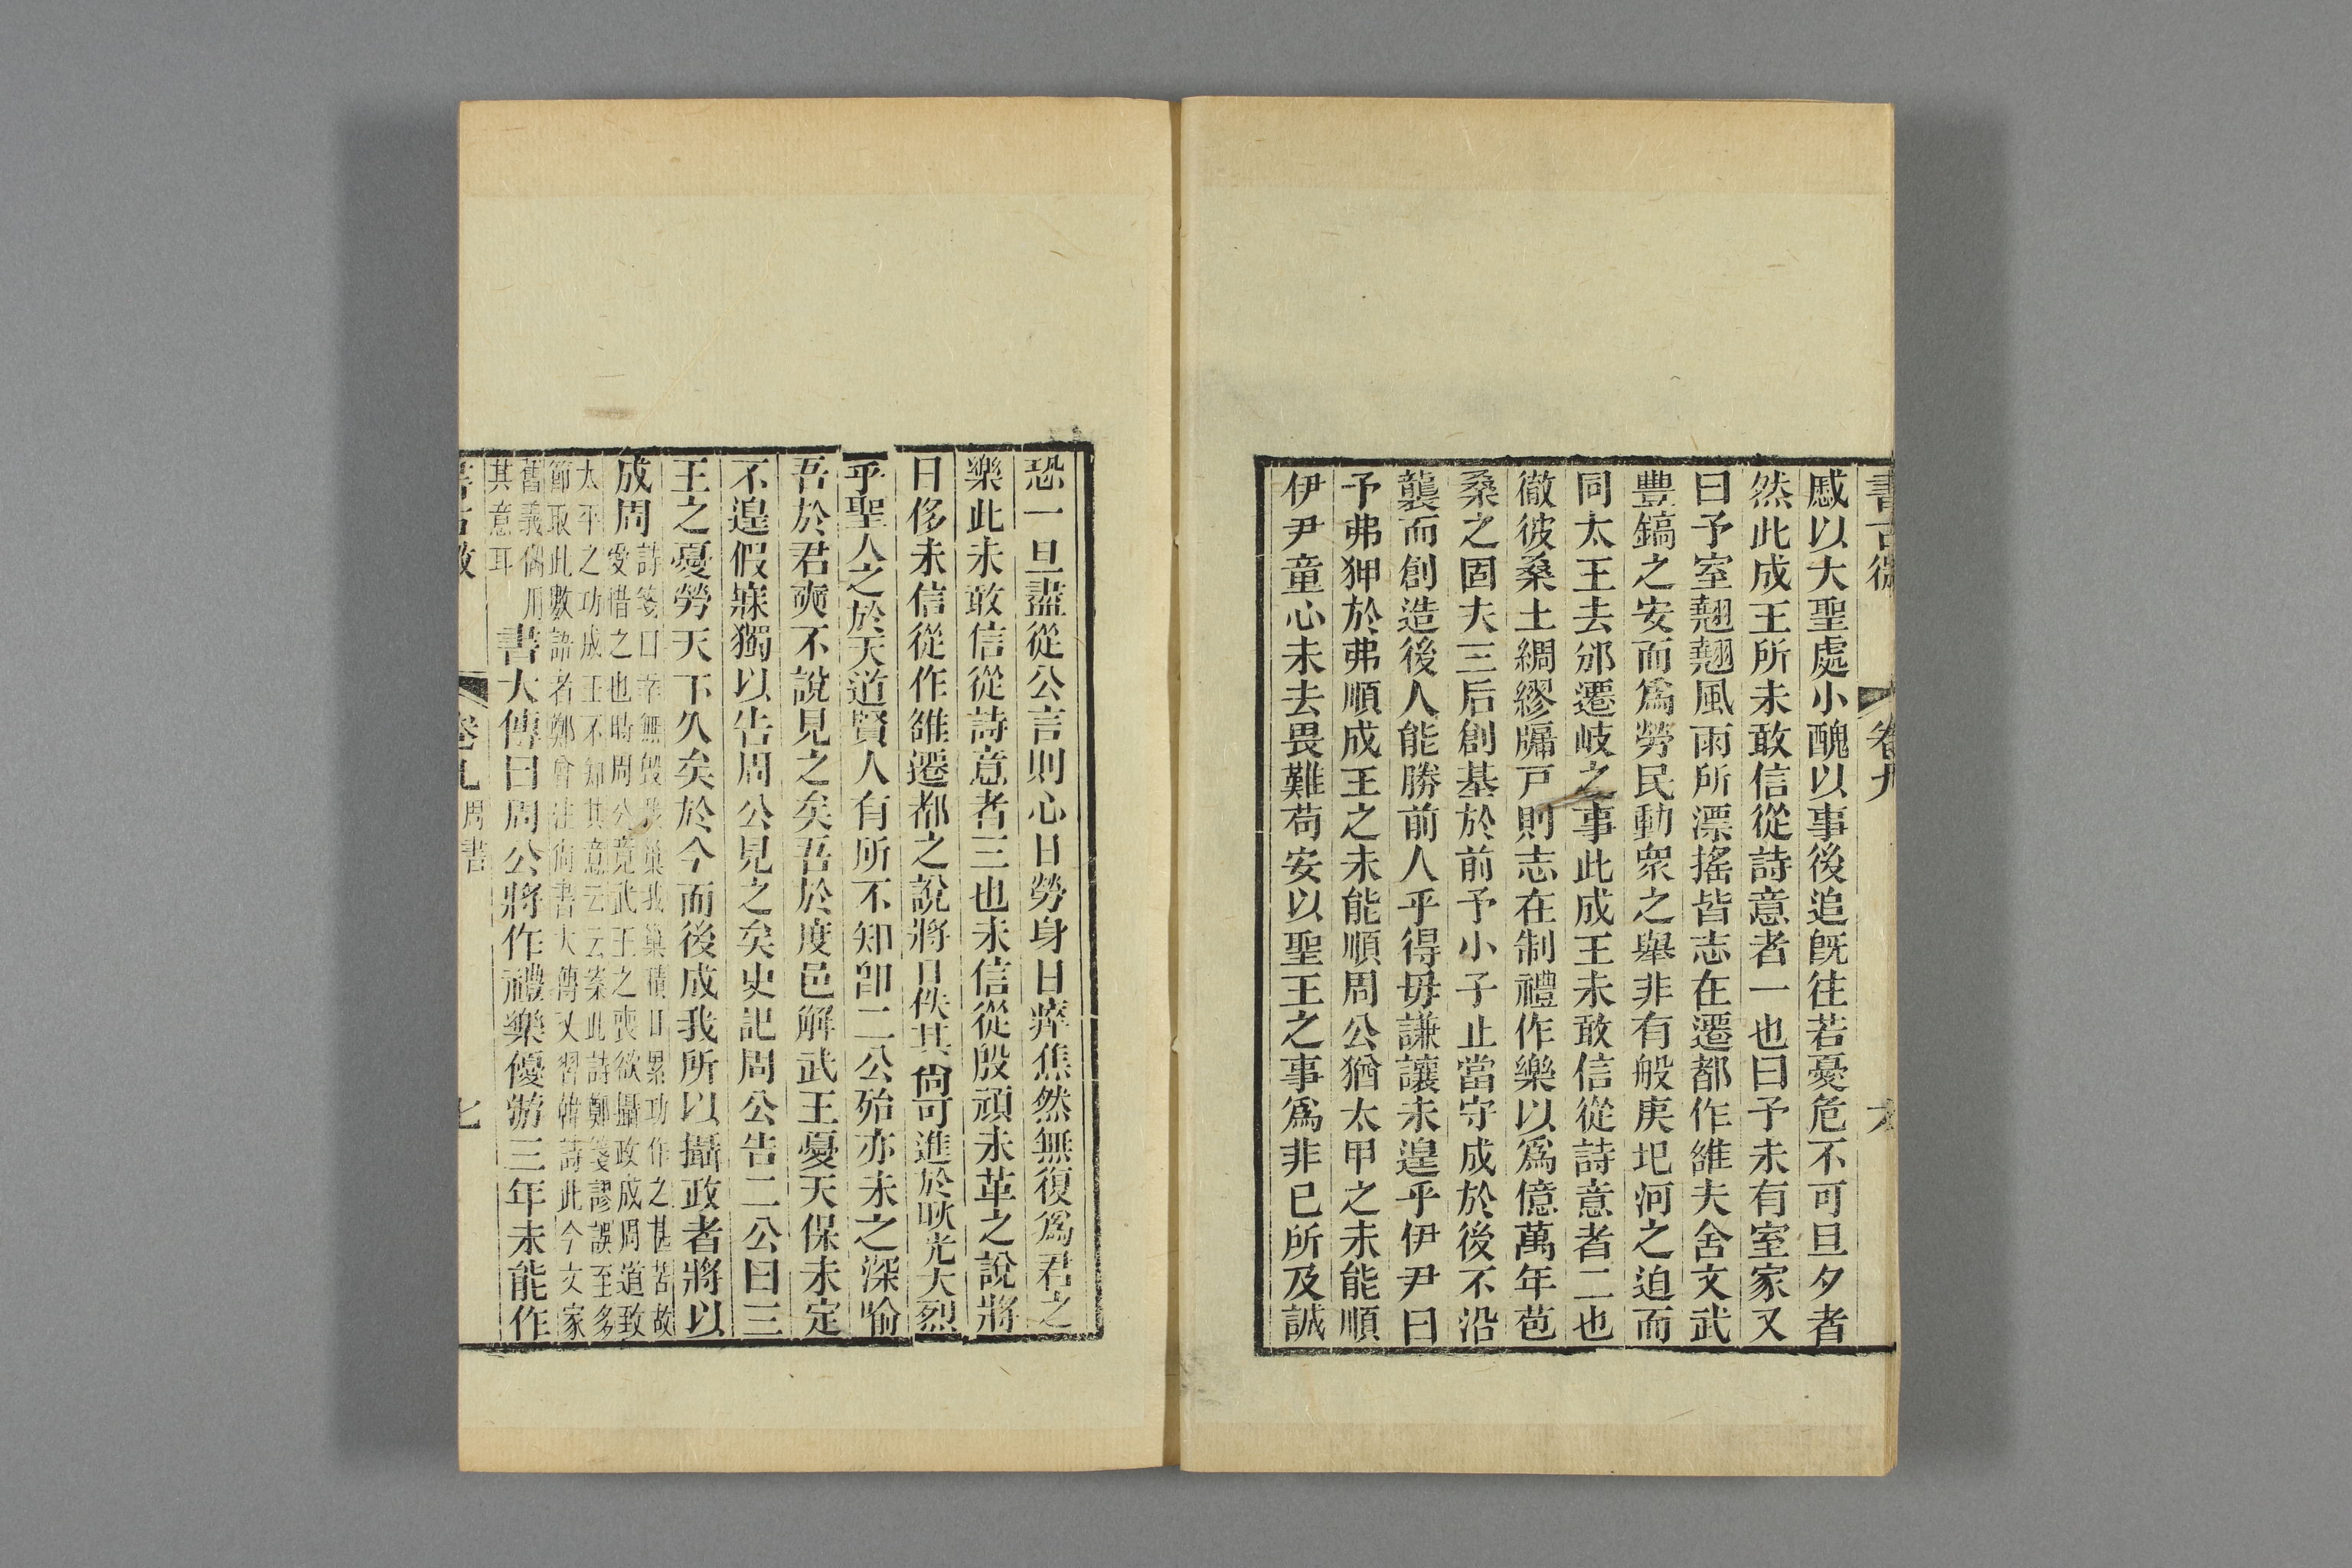 書古微 卷九 六
慼以大聖處小醜以事後追旣往若憂危不可旦夕者
然此成王所未敢信從詩意者一也曰予未有室家又
曰予室翹翹風雨所漂搖皆志在遷都作維夫舍文武
豐鎬之安而爲勞民動眾之舉非有般庚圯河之迫而
同太王去邠遷岐之事此成王未敢信從詩意者二也
徹彼桑土綢繆牖戸則志在制禮作樂以爲億萬年苞
桑之固夫三后創基於前予小子止當守成於後不沿
襲而創造後人能勝前人乎得毋謙讓未遑乎伊尹曰
予弗狎於弗順成王之未能順周公猶太甲之未能順
伊尹童心未去畏難苟安以聖王之事爲非已所及誠
恐一旦盡從公言則心日勞身日瘁焦然無復爲君之
樂此未敢信從詩意者三也未信從殷頑未革之說將
日侈未信從作雒遷都之說將日佚其尙可進於耿光大烈
乎聖人之於天道賢人有所不知卽二公殆亦未之深喻
吾於君奭不說見之矣吾於度邑解武王憂天保未定
不遑假寐獨以告周公見之矣史記周公告二公曰三
王之憂勞天下久矣於今而後成我所以攝政者將以
成周 詩箋曰幸無毀我巢我巢積日累功作之甚苦故
愛惜之也時周公竟武王之喪欲攝政成周道致
太平之功成王不知其意云云案此詩鄭箋謬誤至多
節取此數語者鄭曾注尙書大傳又習韓詩此今文家
舊義偶用
其意耳 書大傳曰周公將作禮樂優游三年未能作
書古微 卷九 周書 七